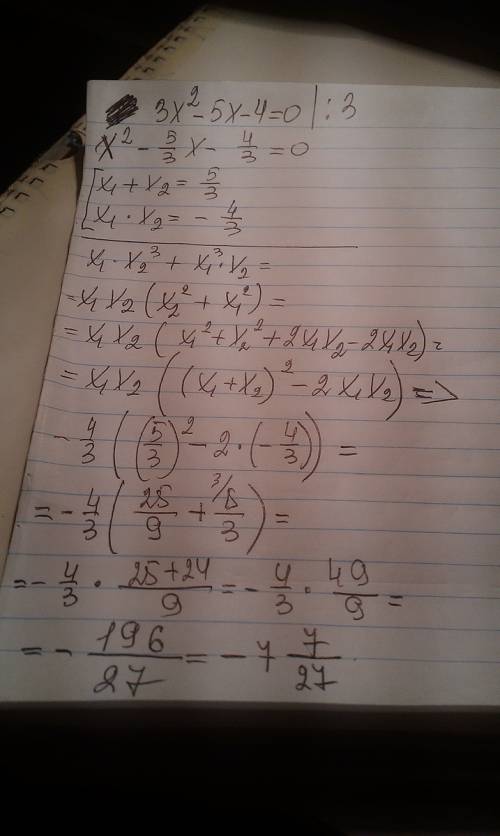 3x² - 5x - 4 = 0 | : 3
x² - 5/3 x - 4/3 = 0
[ x₁ + x₂ = 5/3
x₁ · x₂ = - 4/3
x₁ · x₂³ + x₁³ · x₂ =
= x₁x₂ (x₂² + x₁²) =
= x₁x₂ ( x₁² + x₂² + 2x₁x₂ - 2x₁x₂) =
= x₁x₂ ( (x₁ + x₂)² - 2x₁x₂ ) =>
- 4/3 ( (5/3)² - 2 · (- 4/3) ) =
= - 4/3 ( 25/9 + ³⁄ 8/3 ) =
= - 4/3 · (25+24)/9 = - 4/3 · 49/9 =
= - 196/27 = - 7 7/27